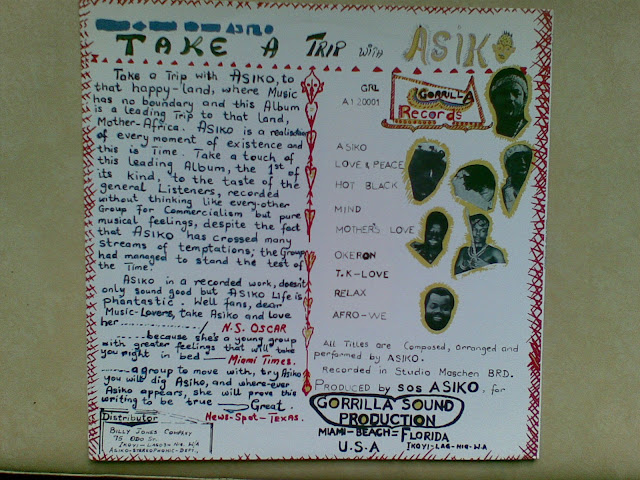 ASIKO
TAKE A TRIP WITH ASIKO
Take a Trip with ASIKO, to
that happy-land, where Music
has no boundary and this Album
is a leading Trip to that land,
Mother-Africa. ASIKO is a realisation
of every moment of existence and
this is Time. Take a touch of
this leading Album, the 1st of
its kind, to the taste of the
general Listeners, recorded
without thinking like every-other
Group For Commercialism but pure
musical feelings, despite the fact
that ASIKO has crossed many
streams of temptations; the group
had managed to stand the test of
the Time.
ASIKO in a recorded work, doesn't
only sound good but ASIKO Life is
phantastic. Well fans, dear
Music-Lovers, take Asiko and Love
her
N.S. OSCAR
because she's a young group
with greater feelings that will take
you right in bed — Miami Times.
a group to move with, try Asiko
you will dig Asiko, and where-ever
Asiko appears, she will prove this
writing to be true — Great.
News-Spot-TEXAS.
Distributor
BILLY JONES COMPANY
75 ODO ST.
IKOYI-LAGOS-NIG. W/A
ASIKO-STEREOPHONIC-DEPT.
GRL
A1 20001
GORRILLA
Records
ASIKO
LOVE & PEACE
HOT BLACK
MIND
MOTHER'S LOVE
OKERON
T.K-LOVE
RELAX
AFRO-WE
All Titles are Composed, arranged and
performed by ASIKO.
Recorded in Studio Maschen BRD.
PRODUCED by SOS ASIKO, for
GORRILLA SOUND
PRODUCTION
MIAMI-BEACH=FLORIDA
U.S.A
IKOYI-LAG-NIG-W.A